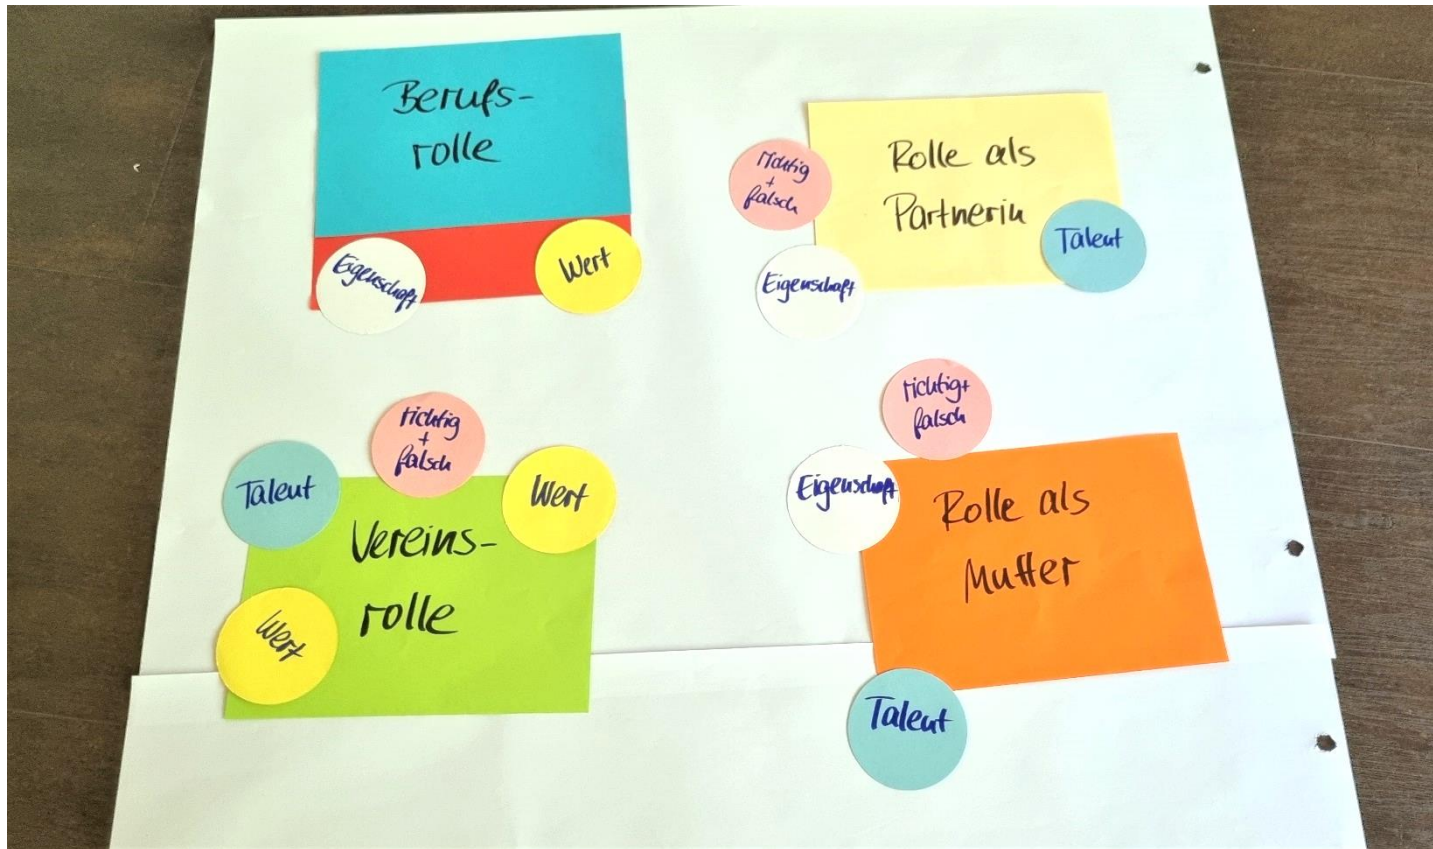 Berufs-
rolle
Eigenschaft
Wert
richtig
+
falsch
Rolle als
Partnerin
Talent
Eigenschaft
Talent
richtig
+
falsch
Wert
Vereins-
rolle
Wert
richtig+
falsch
Eigenschaft
Rolle als
Mutter
Talent